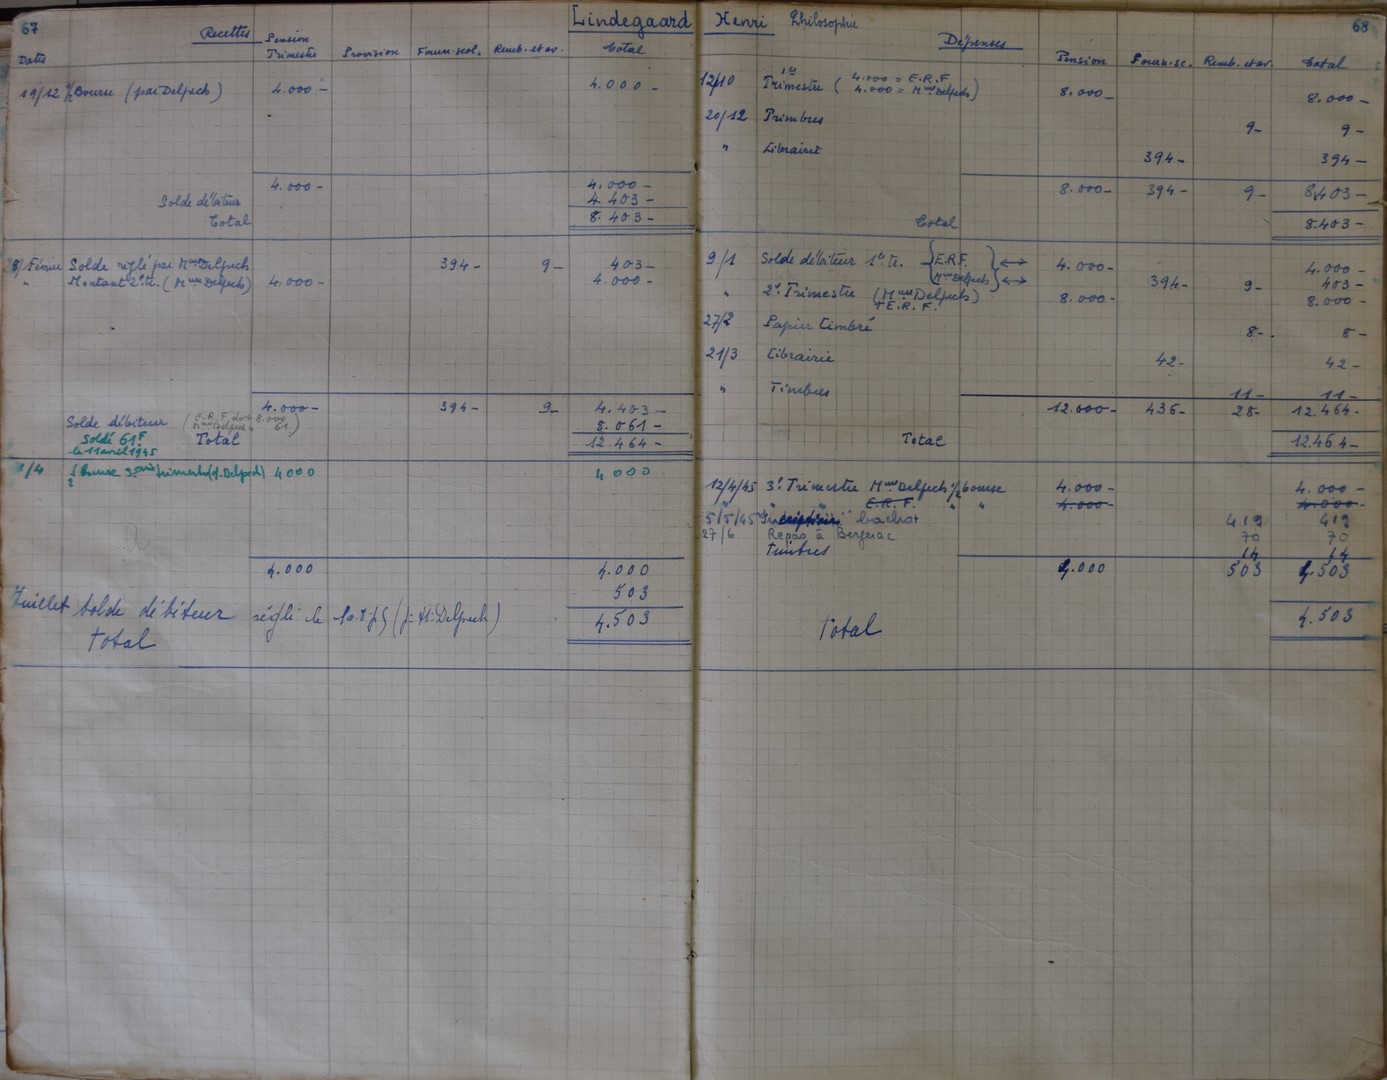 67
Lindegaard
Recettes
Dates
Pension Trimestre
Provision
Fourn. scol.
Remb. et av.
Total
19/12 1/2 Bourse (par Delpech) 4.000- 4.000-
4.000- 4.000-
Solde débiteur 4.403-
Total 8.403-
8/Février Solde réglé par Mme Delpech 394- 9- 403-
" Montant 2e tr. (Mme Delpech) 4.000- 4.000-
4.000- 394- 9- 4.403-
Solde débiteur (E.R.F. doit 8.000 Mme Delpech 61) 8.061-
Soldé 61F Total 12.464-
le 11 avril 1945
1/4 1/2 Bourse 3ème trimestre (j. Delpech) 4000 4000
4.000 4.000
503
Juillet Solde débiteur réglé le (j. H. Delpech) 4.503
Total
68
Henri Philosophie
Dépenses
Pension
Fourn. sc.
Remb. et av.
Total
12/10 1er Trimestre (4.000 = E.R.F. 4.000 = Mme Delpech) 8.000- 8.000-
20/12 Timbres 9- 9-
" Librairie 394- 394-
8.000- 394- 9- 8.403-
Total 8.403-
9/1 Solde débiteur 1er tr. {E.R.F.} ↔ 4.000- 4.000-
{Mme Delpech} ↔ 394- 9- 403-
" 2e Trimestre (Mme Delpech) 8.000- 8.000-
+ E.R.F.
27/2 Papier timbré 8- 8-
21/3 Librairie 42- 42-
" Timbres 11- 11-
12.000- 436- 28- 12.464-
Total 12.464-
12/4/45 3e Trimestre Mme Delpech 1/2 bourse 4.000- 4.000-
" " E.R.F. " " 4.000- 4.000-
5/5/45 Inscription bachot 419 419
27/6 Repas à Bergerac 70 70
Timbres 14 14
4.000 503 4.503
Total 4.503